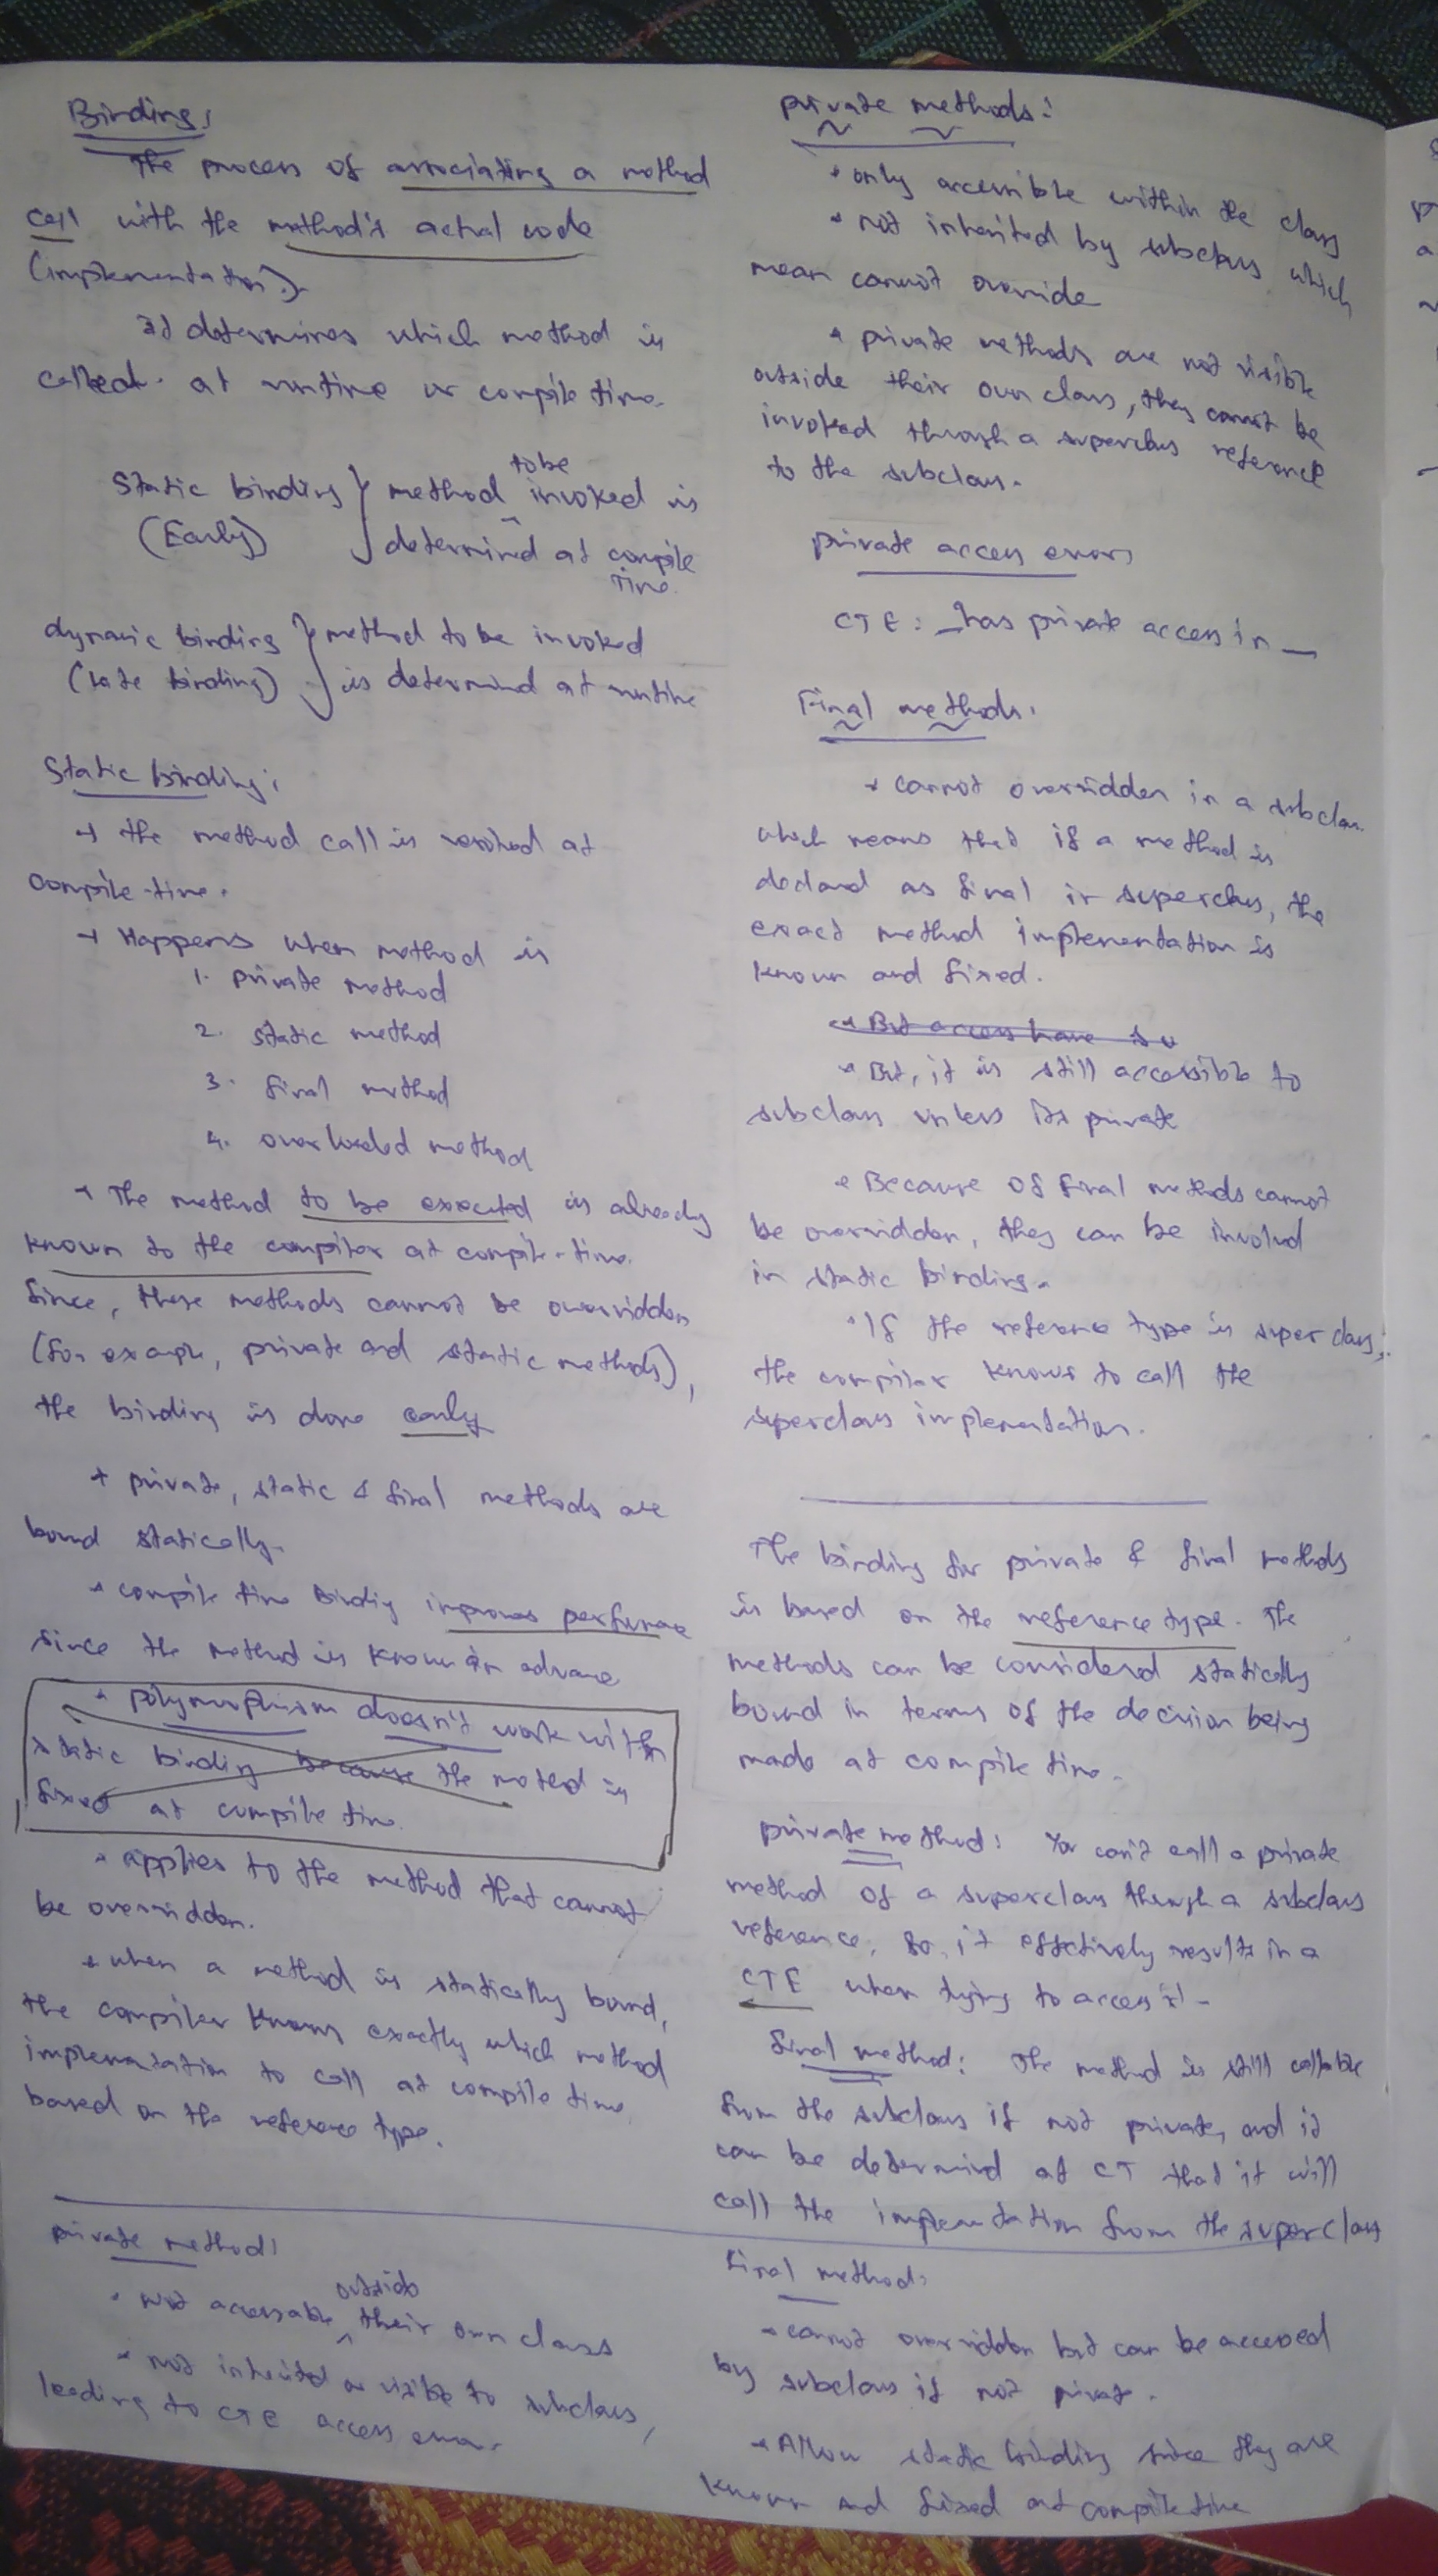 Binding:
The process of associating a method
call with the method's actual code
(implementation).
It determines which method is
called at runtime or compile time.
Static binding } method to be invoked is
(Early) determined at compile
time.
dynamic binding } method to be invoked
(late binding) is determind at runtime
Static binding:
→ the method call is resolved at
compile-time.
→ Happens when method is
1. private method
2. static method
3. final method
4. overloaded method
→ The method to be executed is already
known to the compiler at compile-time.
Since, these methods cannot be overridden
(for example, private and static methods),
the binding is done early
→ private, static & final methods are
bound statically.
• compile time Binding improves performance
since the method is known in advance
• polymorphism doesn't work with
static binding because the method is
fixed at compile time.
• applies to the method that cannot
be overridden.
• when a method is statically bound,
the compiler knows exactly which method
implementation to call at compile time
based on the reference type.
private method:
• Not accessable outside their own class
• not inherited or visible to subclass,
leading to CTE access error.
private methods:
• only accessible within the class
• not inherited by subclass which
mean cannot override
• private methods are not visible
outside their own class, they cannot be
invoked through a superclass reference
to the subclass.
private access errors
CTE: _ has private access in _
Final methods:
• cannot overridden in a subclass.
which means that if a method is
declared as final in superclass, the
exact method implementation is
known and fixed.
• But access have
• But, it is still accessible to
subclass unless its private
• Because of final methods cannot
be overridden, they can be involved
in static binding.
• If the reference type is super class,
the compiler knows to call the
superclass implementation.
The binding for private & final methods
is based on the reference type. The
methods can be considered statically
bound in terms of the decision being
made at compile time.
private method: You can't call a private
method of a superclass though a subclass
reference, so, it effectively results in a
CTE when trying to access it.
final method: The method is still callable
from the subclass if not private, and it
can be determind at CT that it will
call the implementation from the superclass
Final method:
• cannot overridden but can be accessed
by subclass if not private.
• Allow static binding since they are
known and fixed at compile time